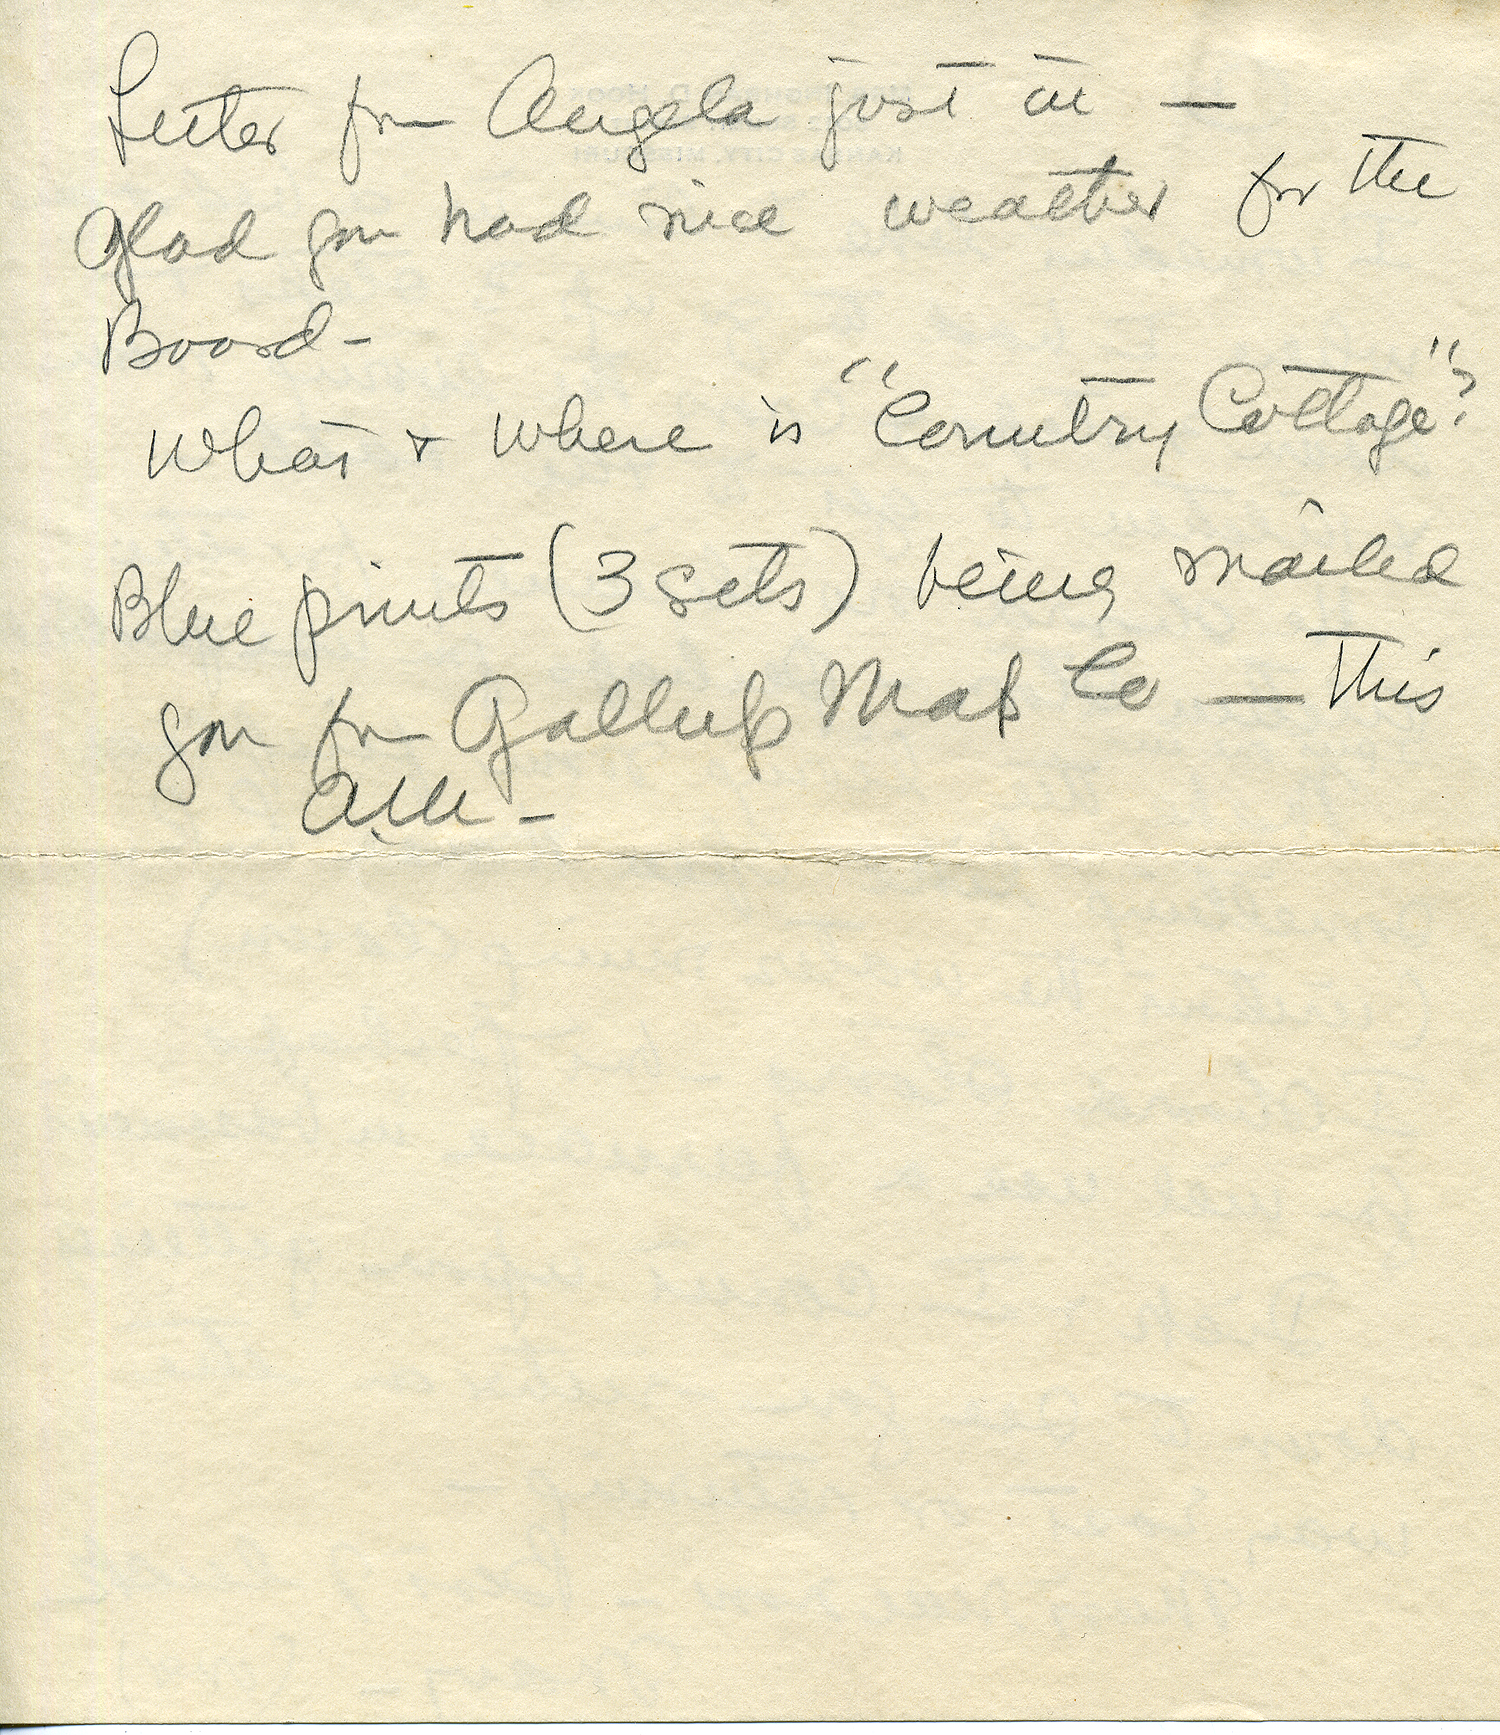 Letter from Angela just in —
Glad you had nice weather for the
Board –
What + where is "Country Cottage"?
Blue prints (3 sets) being mailed
you from Gallup Map Co — this
A.M. –